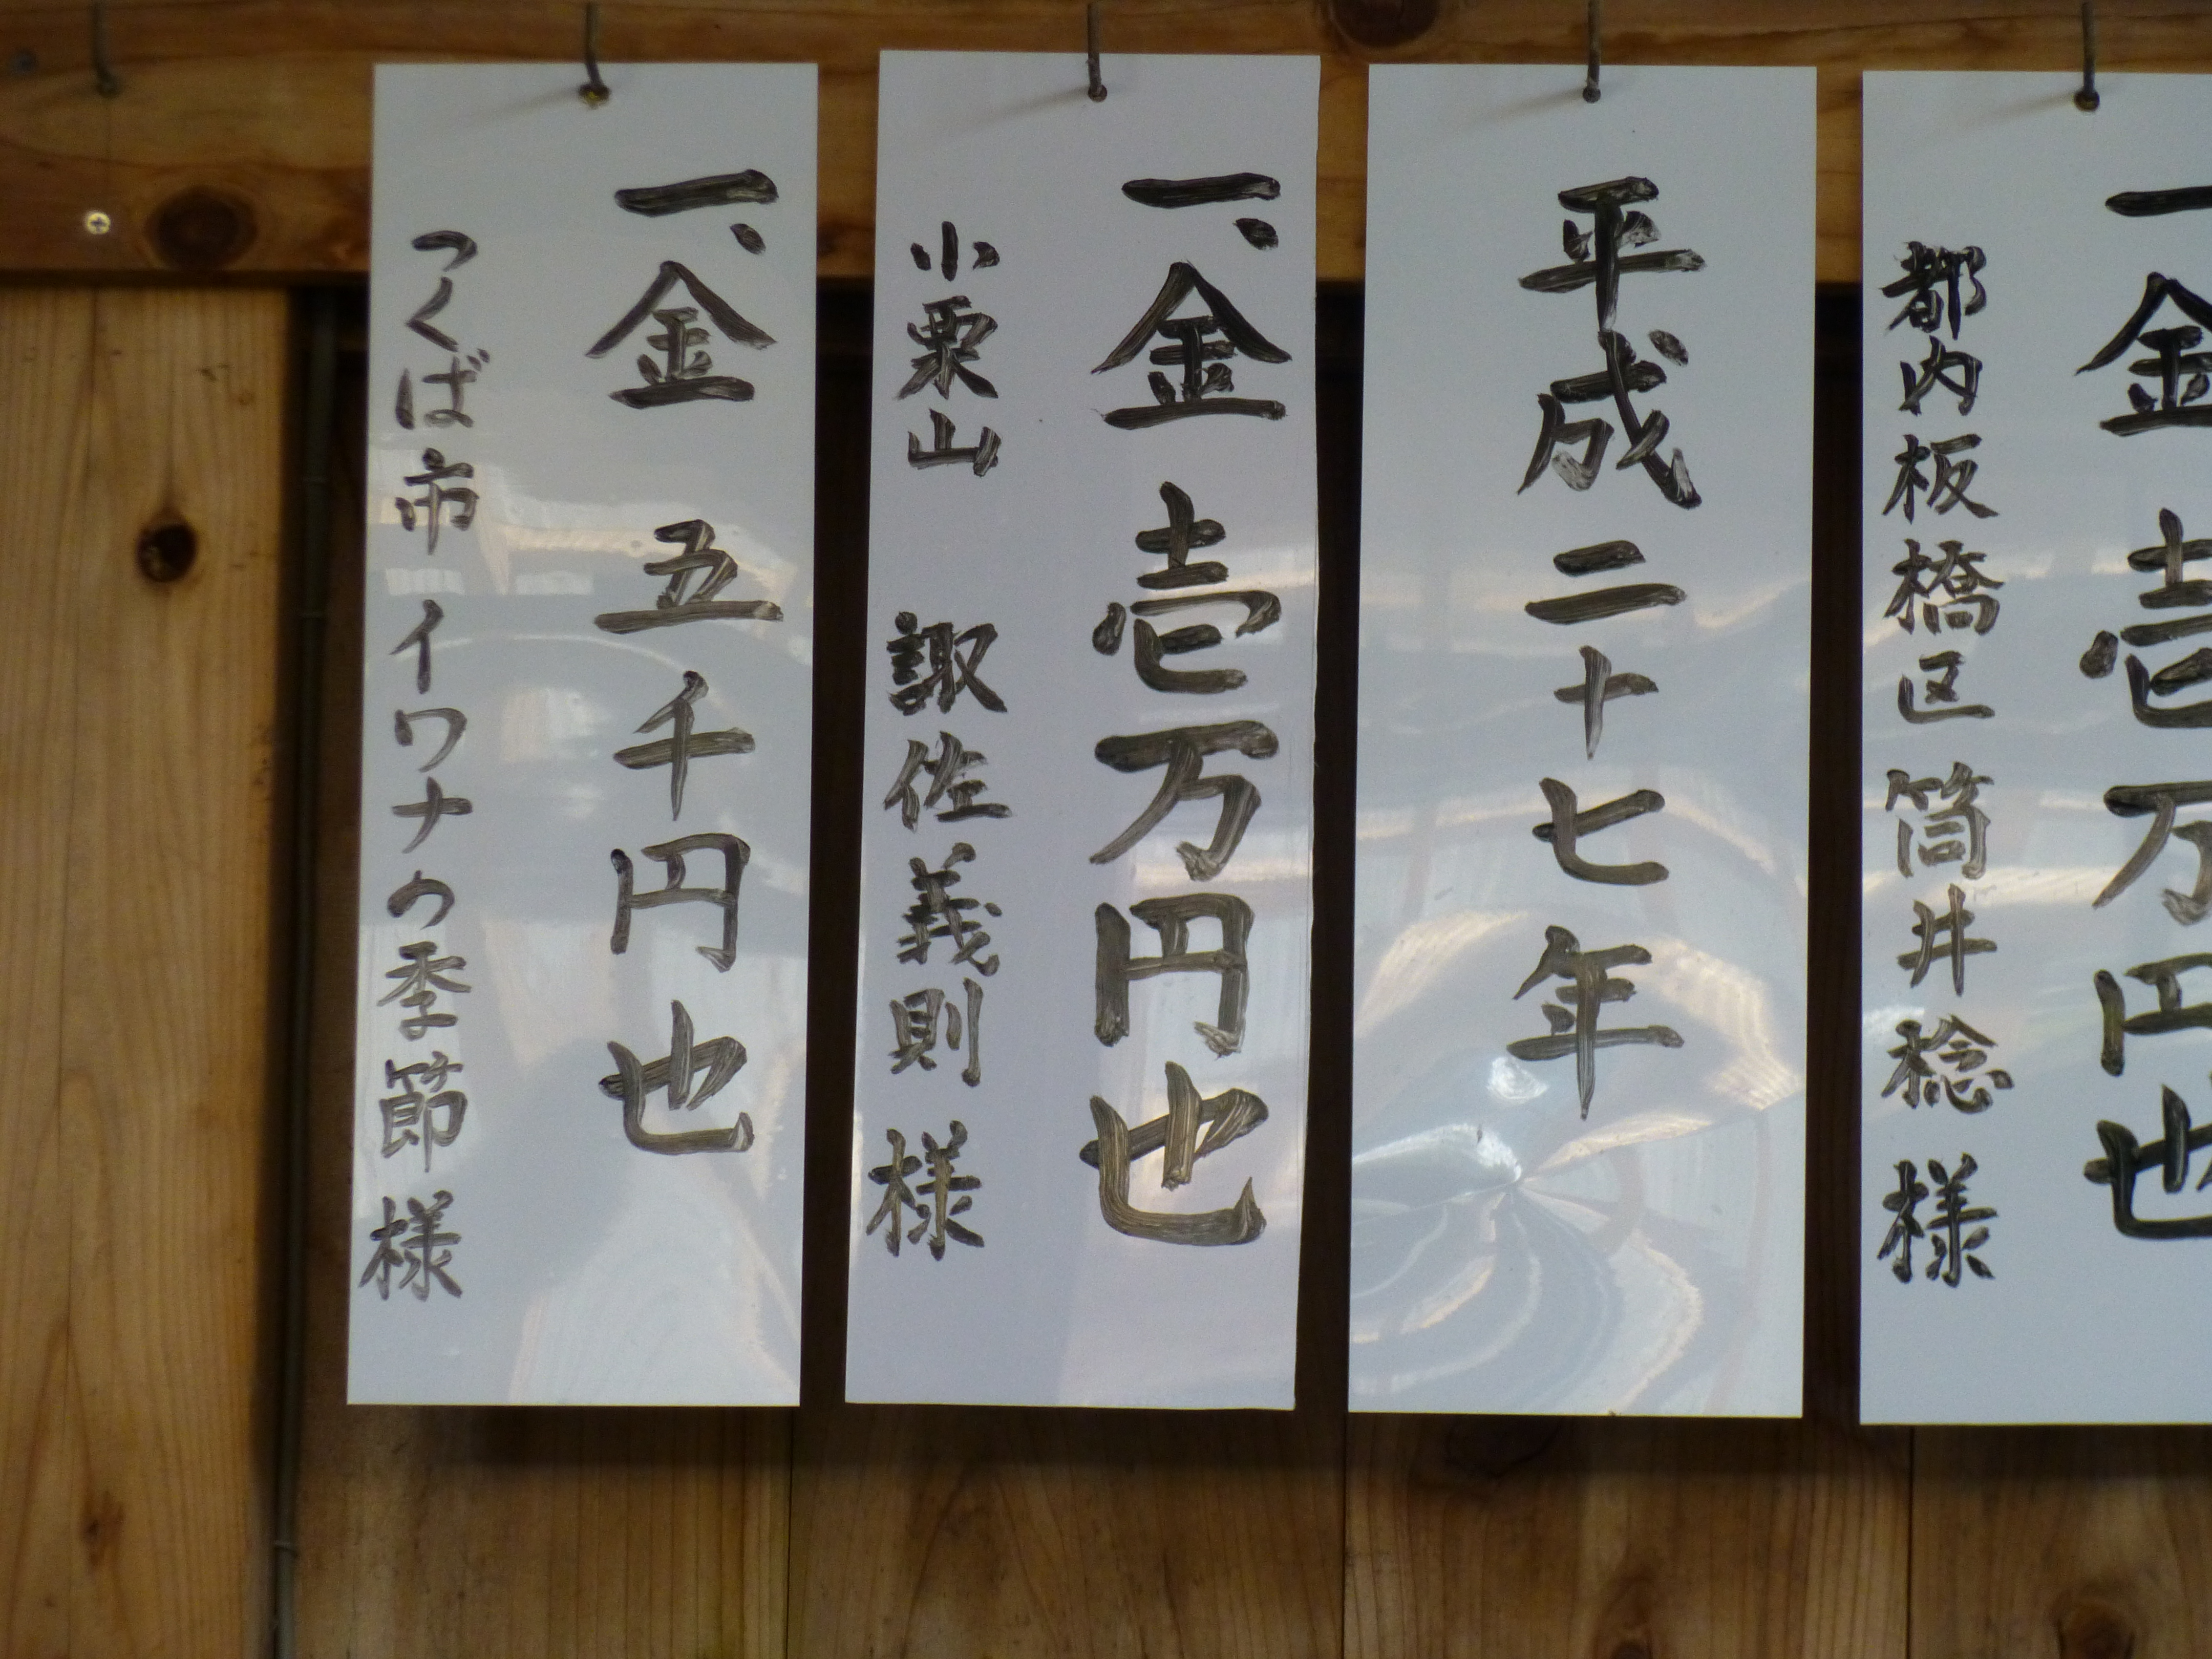 一金壱万円也
都内板橋区 筒井稔様
平成二十七年
一、金壱万円也
小栗山 諏佐義則様
一、金五千円也
つくば市 イワナの季節様